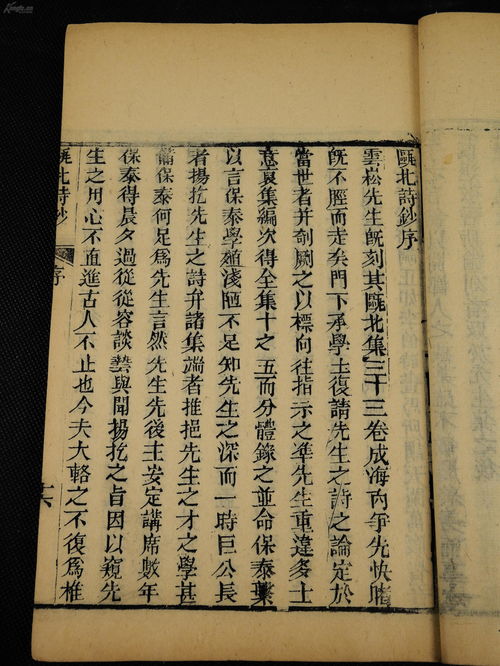 甌北詩鈔序
雲崧先生旣刻其甌北集三十三卷成海內爭先快睹
旣不脛而走矣門下承學士復請先生之詩之論定於
當世者并剞劂之以標向往指示之準先生重違多士
意裒集編次得全集十之五而分體錄之並命保泰綴
以言保泰學殖淺陋不足知先生之深而一時巨公長
者揚扢先生之詩弁諸集端者推挹先生之才之學甚
備保泰何足爲先生言然先生先後主安定講席數年
保泰得晨夕過從從容談藝與聞揚扢之旨因以窺先
生之用心不直進古人不止也今夫大輅之不復爲椎
甌北詩鈔
序